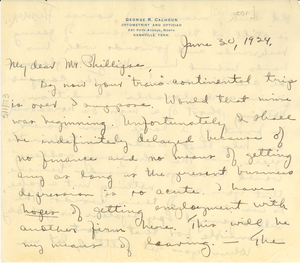 GEORGE R. CALHOUN
OPTOMETRIST AND OPTICIAN
NASHVILLE, TENN.
June 30, 1924,
My dear Mr Phillips,
By now your "trans" continental trip
is over I suppose. Would that mine
was beginning. Unfortunately I shall
be indefinitely delayed because of
no finance and no means of getting
any as long as the present business
depression is so acute. I have
hopes of getting employment with
another firm here. This will be
my means of leaving. — The